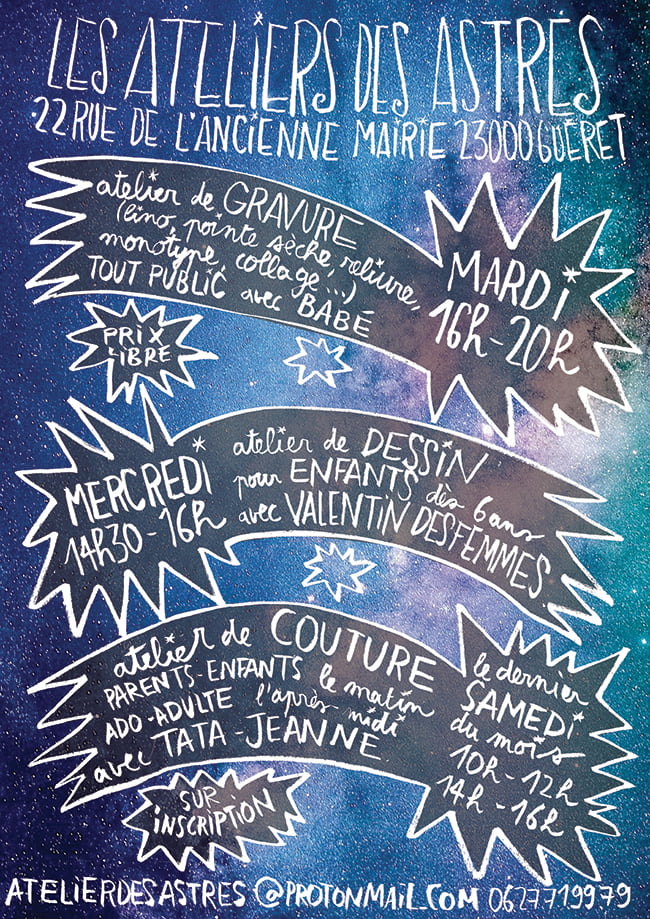 LES ATELIERS DES ASTRES
22 RUE DE L'ANCIENNE MAIRIE 23000 GUÉRET
atelier de GRAVURE
(lino, pointe sèche, reliure,
monotype, collage...)
TOUT PUBLIC avec BABÉ
MARDI
16h-20h
PRIX
LIBRE
MERCREDI
14h30-16h
atelier de DESSIN
pour ENFANTS dès 6 ans
avec VALENTIN DESFEMMES
atelier de COUTURE
PARENTS-ENFANTS le matin
ADO-ADULTE l'après-midi
avec TATA-JEANNE
le dernier
SAMEDI
du mois
10h-12h
14h-16h
SUR
INSCRIPTION
ATELIERDESASTRES@PROTONMAIL.COM 0627719979